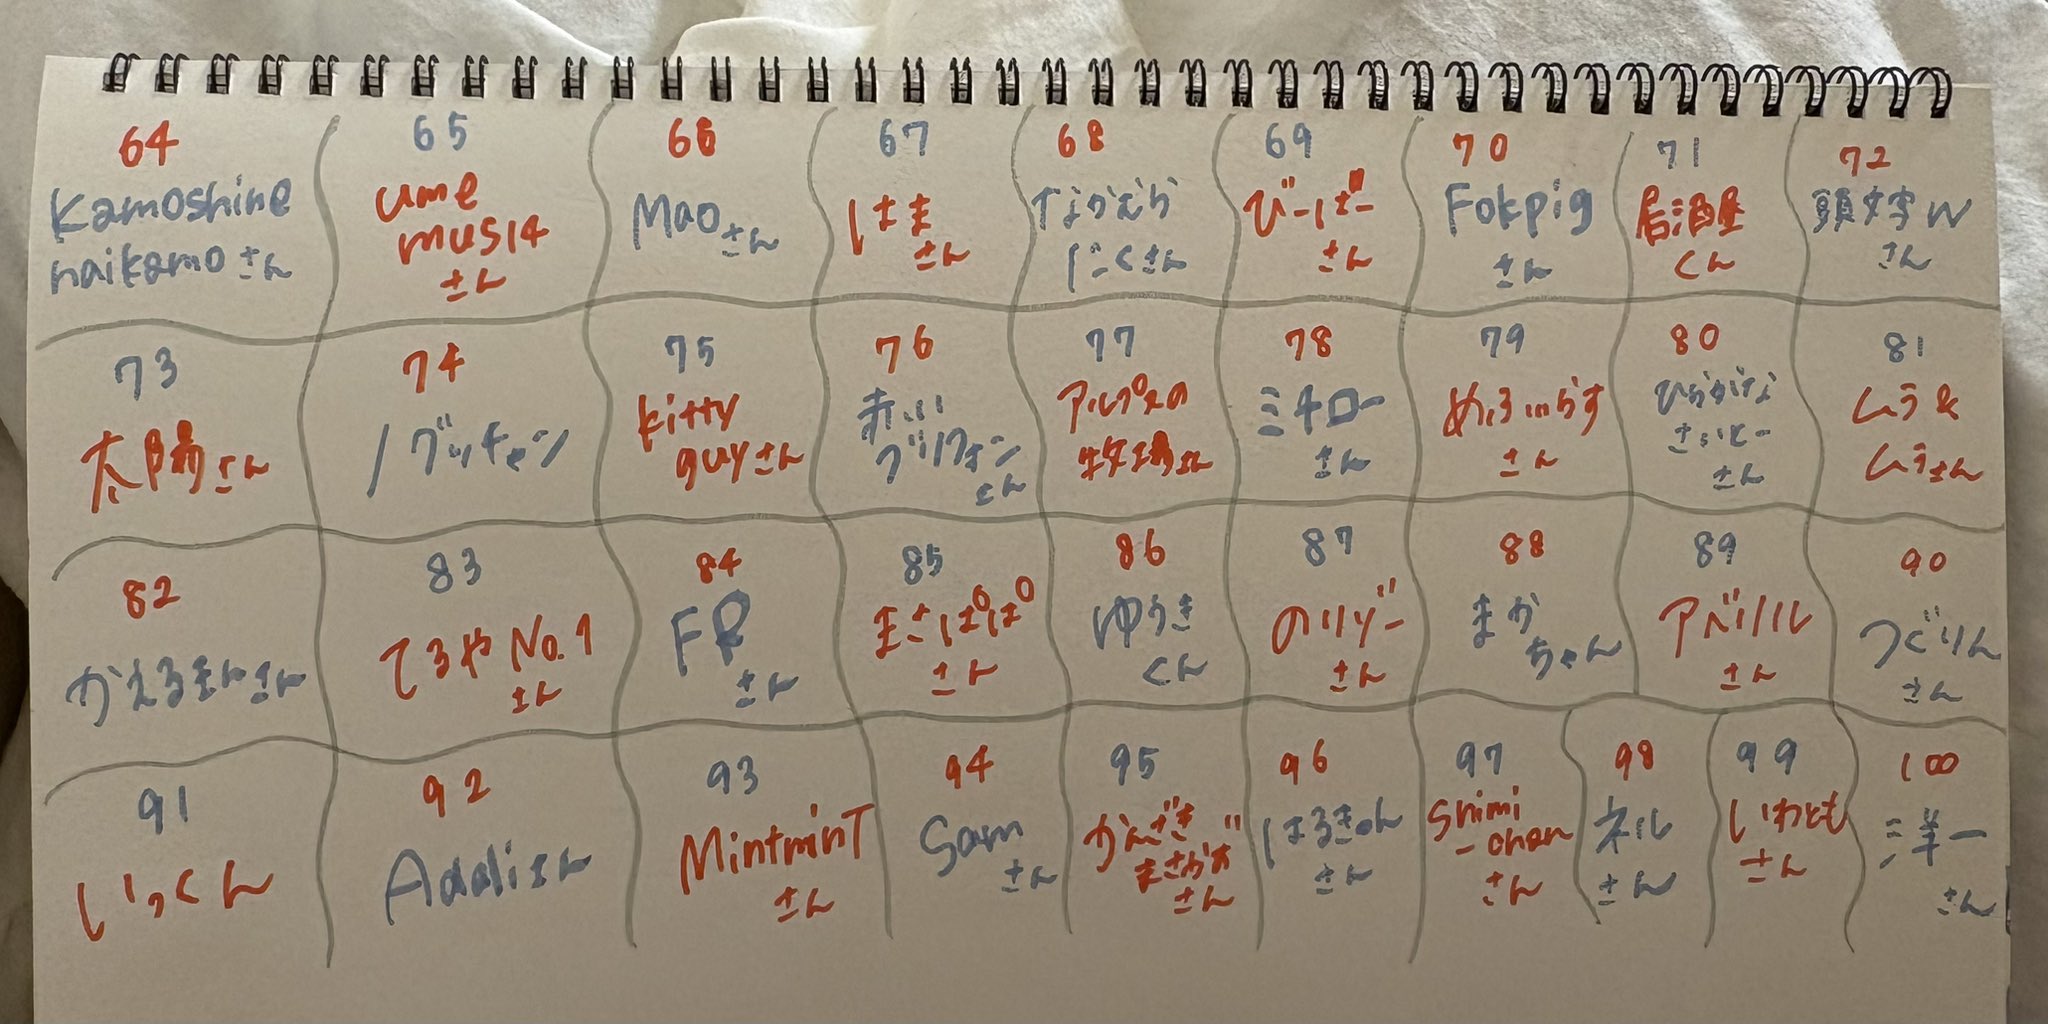 64
Kamoshine
naikamoさん
65
ume
musik
さん
66
Maoさん
67
はま
さん
68
なかむら
にくさん
69
びーばー
さん
70
Fokpig
さん
71
居酒屋
くん
72
頭文字W
さん
73
太陽さん
74
ノグッチャン
75
kitty
guyさん
76
赤い
グリフォン
さん
77
アルプスの
牧場さん
78
ミキロー
さん
79
めふぃらす
さん
80
ひらがな
さいとー
さん
81
ムラ&
ムラさん
82
かえるまんさん
83
てるやNo.1
さん
84
FR
さん
85
まさぱぱ
さん
86
ゆうき
くん
87
のりぞー
さん
88
まか
ちゃん
89
アベリル
さん
90
つぐりん
さん
91
いっくん
92
Addiさん
93
Mintmint
さん
94
Sam
さん
95
かんざき
まさかず
さん
96
はるきょん
さん
97
Shimi
-chan
さん
98
ネル
さん
99
いわとも
さん
100
洋一
さん